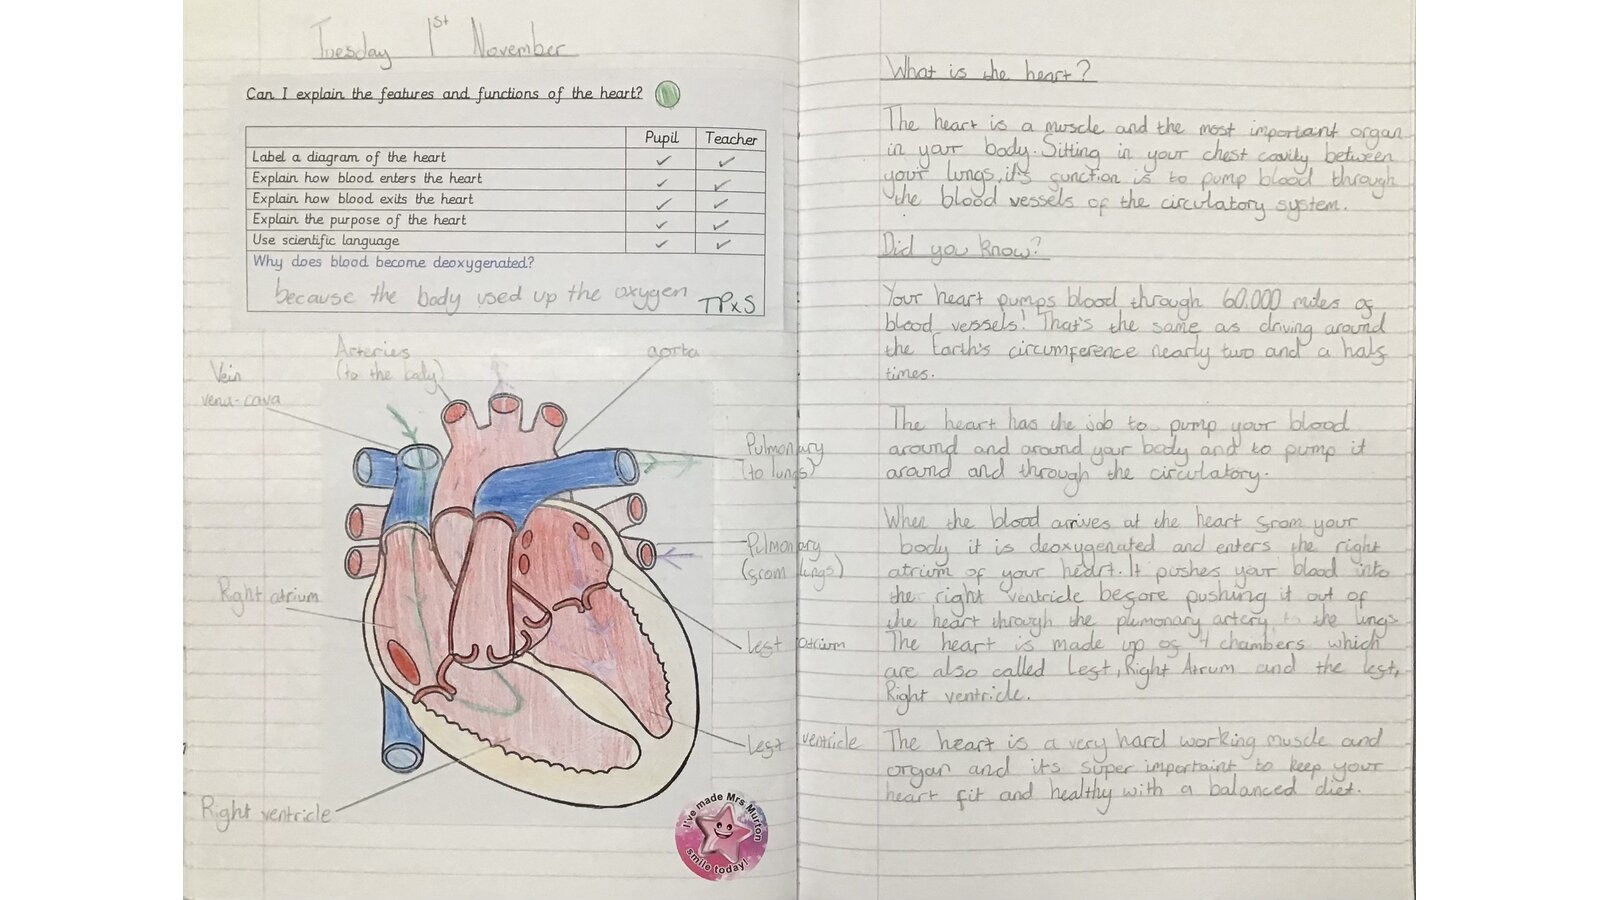 Tuesday 1st November
Can I explain the features and functions of the heart?
Pupil Teacher
Label a diagram of the heart ✓ ✓
Explain how blood enters the heart ✓ ✓
Explain how blood exits the heart ✓ ✓
Explain the purpose of the heart ✓ ✓
Use scientific language ✓ ✓
Why does blood become deoxygenated?
because the body used up the oxygen
TPxS
Arteries
(to the body)
aorta
Vein
vena-cava
Pulmonary
(to lungs)
Pulmonary
(from lungs)
Right atrium
Left atrium
Left ventricle
Right ventricle
I've made Mrs Murton
smile today!
What is the heart?
The heart is a muscle and the most important organ
in your body. Sitting in your chest cavity between
your lungs, it's function is to pump blood through
the blood vessels of the circulatory system.
Did you know?
Your heart pumps blood through 60,000 miles of
blood vessels! That's the same as driving around
the Earth's circumference nearly two and a half
times.
The heart has the job to pump your blood
around and around your body and to pump it
around and through the circulatory.
When the blood arrives at the heart from your
body it is deoxygenated and enters the right
atrium of your heart. It pushes your blood into
the right ventricle before pushing it out of
the heart through the plumonary artery to the lungs
The heart is made up of 4 chambers which
are also called Left, Right Atrum and the left,
Right ventricle.
The heart is a very hard working muscle and
organ and its super importaint to keep your
heart fit and healthy with a balanced diet.